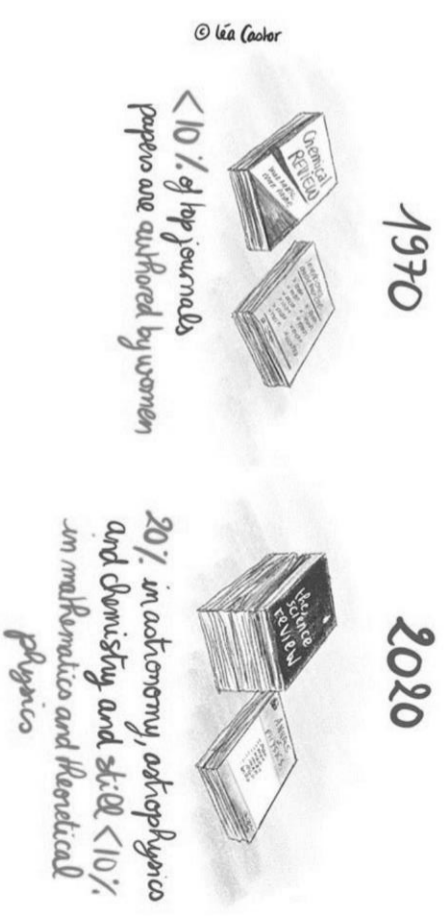 © Léa Castor
1970
Chemical
REVIEW
<10% of top journals
papers are authored by women
2020
the
science
review
ANNALS
OF
20% in astronomy, astrophysics
and chemistry and still <10%
in mathematics and theoretical
physics